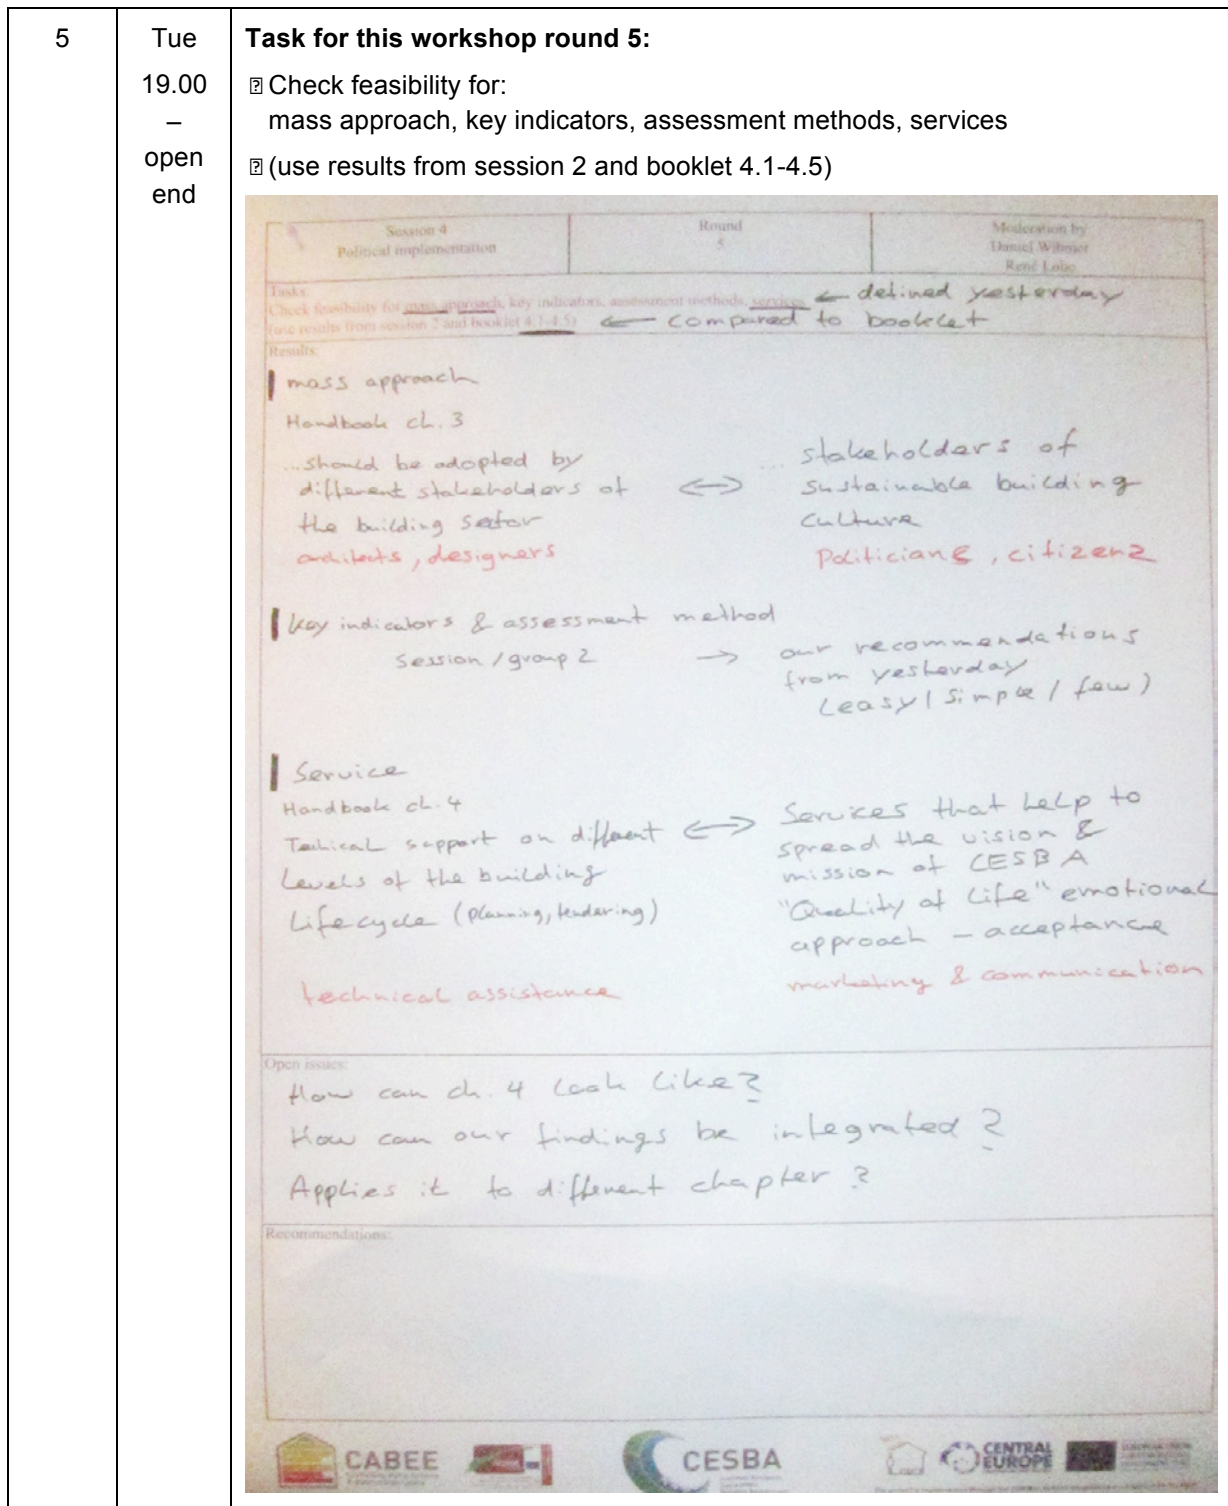 5
Tue
19.00
–
open
end
Task for this workshop round 5:
Check feasibility for:
mass approach, key indicators, assessment methods, services
(use results from session 2 and booklet 4.1-4.5)
Session 4
Political implementation
Round
5
Moderation by
Daniel
René
Tasks:
Check feasibility for mass approach, key indicators, assessment methods, services ← defined yesterday
(use results from session 2 and booklet 4.1-4.5) ← compared to booklet
Results:
mass approach
Handbook ch. 3
...should be adopted by
different stakeholders of
the building sector
architects, designers
⟷
... stakeholders of
sustainable building
culture
Politicians, citizens
key indicators & assessment method
Session / group 2 → our recommendations
from yesterday
(easy / simple / few)
Service
Handbook ch. 4
Technical support on different
levels of the building
Lifecycle (planning, tendering)
technical assistance
⟷
Services that help to
spread the vision &
mission of CESBA
"Quality of life" emotional
approach – acceptance
marketing & communication
Open issues:
How can ch. 4 look like?
How can our findings be integrated?
Applies it to different chapter?
Recommendations:
CABEE
CESBA
CENTRAL
EUROPE